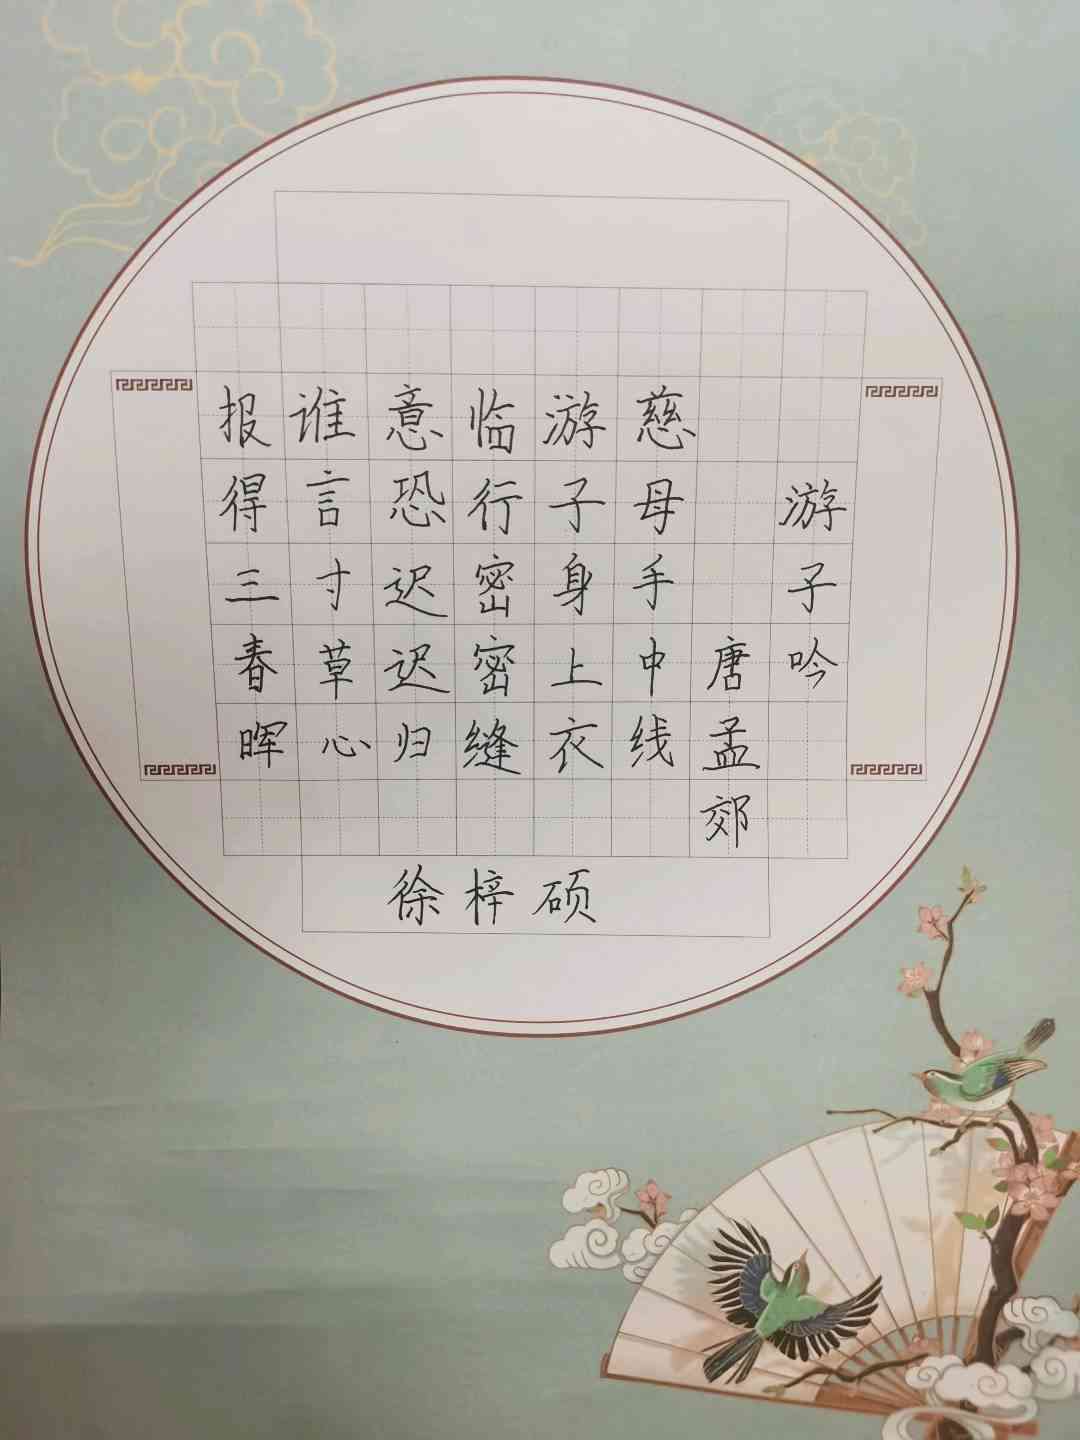 游子吟
唐孟郊
慈母手中线
游子身上衣
临行密密缝
意恐迟迟归
谁言寸草心
报得三春晖
徐梓硕